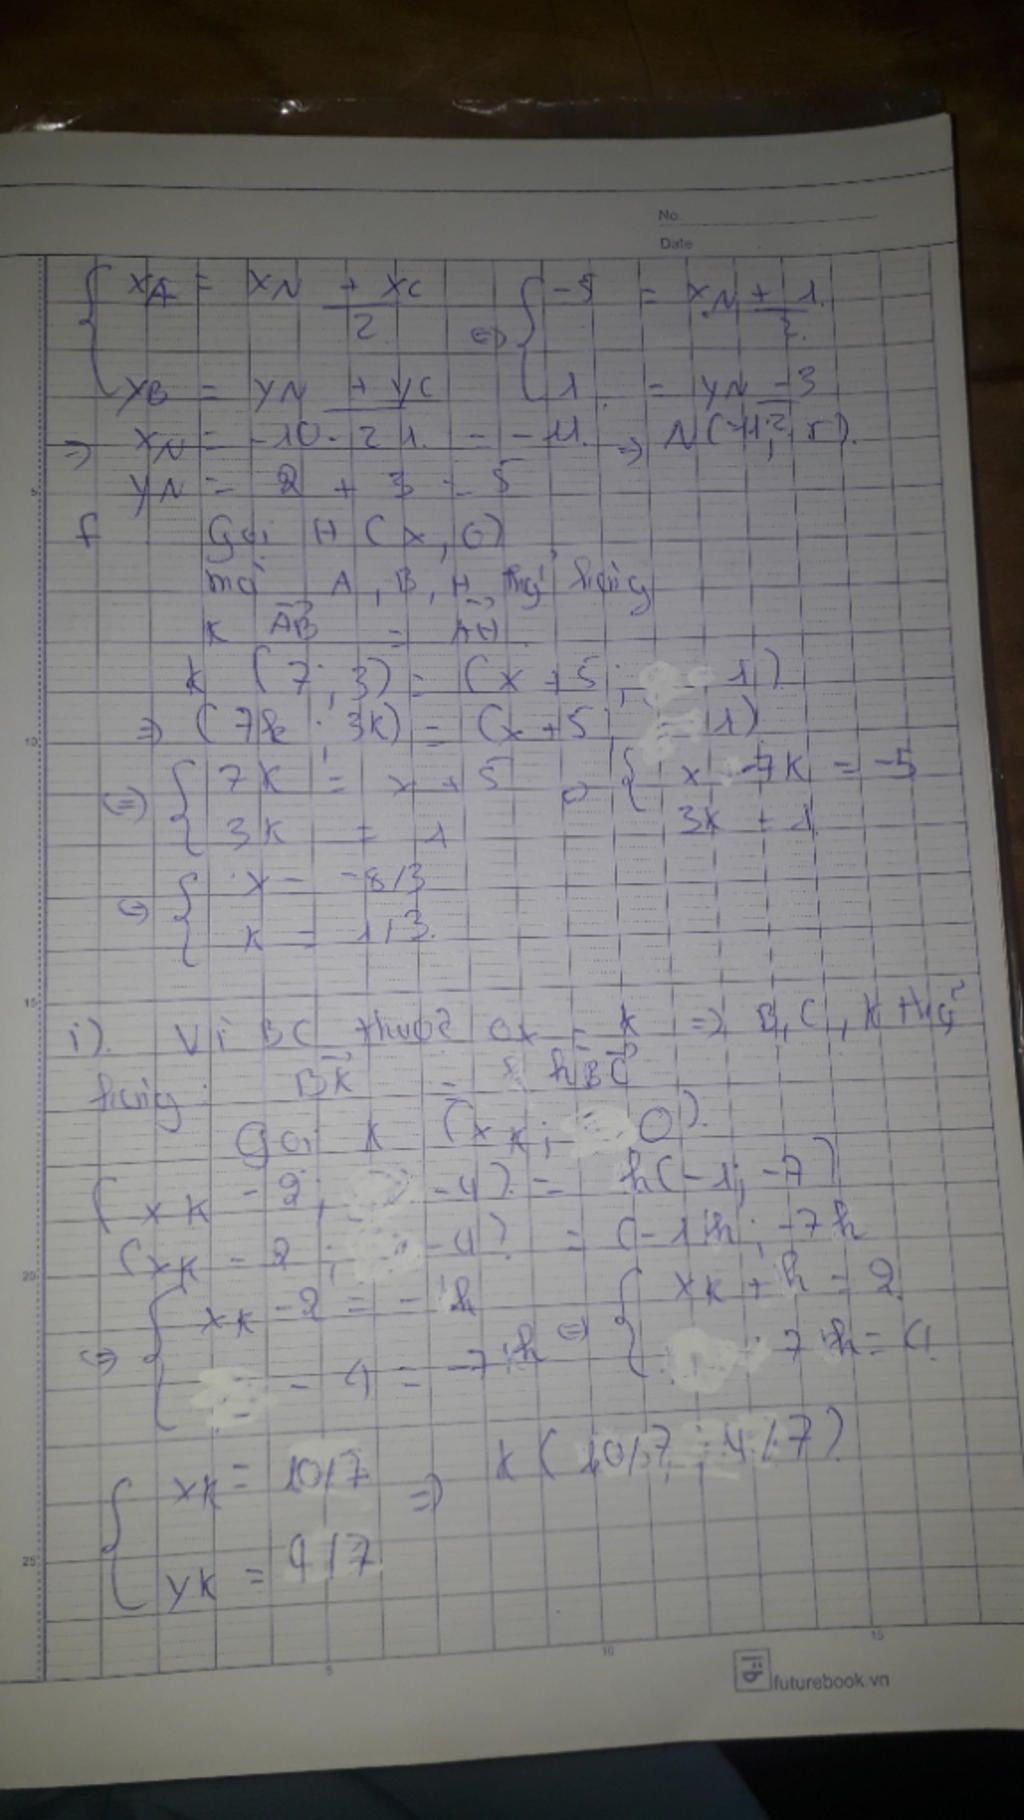 No.
Date
{ xA = xN + xC / 2 <=> { -5 = xN + 1 / 2
yB = yN + yC / 2 { 1 = yN - 3 / 2
=> xN = -10 - 1 = -11 => N(-11; 5).
yN = 2 + 3 = 5
f Gọi H (x, 0)
mà A, B, H thẳng hàng
k AB = AH
k (7; 3) = (x + 5; - 1)
=> (7k; 3k) = (x + 5 - 1)
<=> { 7k = x + 5 <=> { x - 7k = -5
3k = 1 3k = 1
<=> { x = -8/3
k = 1/3.
i). Vì BC thuộc Ox = k => B, C, K thẳng
hàng: BK = hBC
Gọi K (xK; 0).
(xK - 2; -4) = h(-1; -7)
(xK - 2; -4) = (-1h; -7h
<=> { xK - 2 = -h <=> { xK + h = 2
- 4 = -7h 7h = 4
{ xK = 10/7 => K (10/7; 4/7)
yK = 4/7
5
10
15
20
25
5
10
15
futurebook.vn